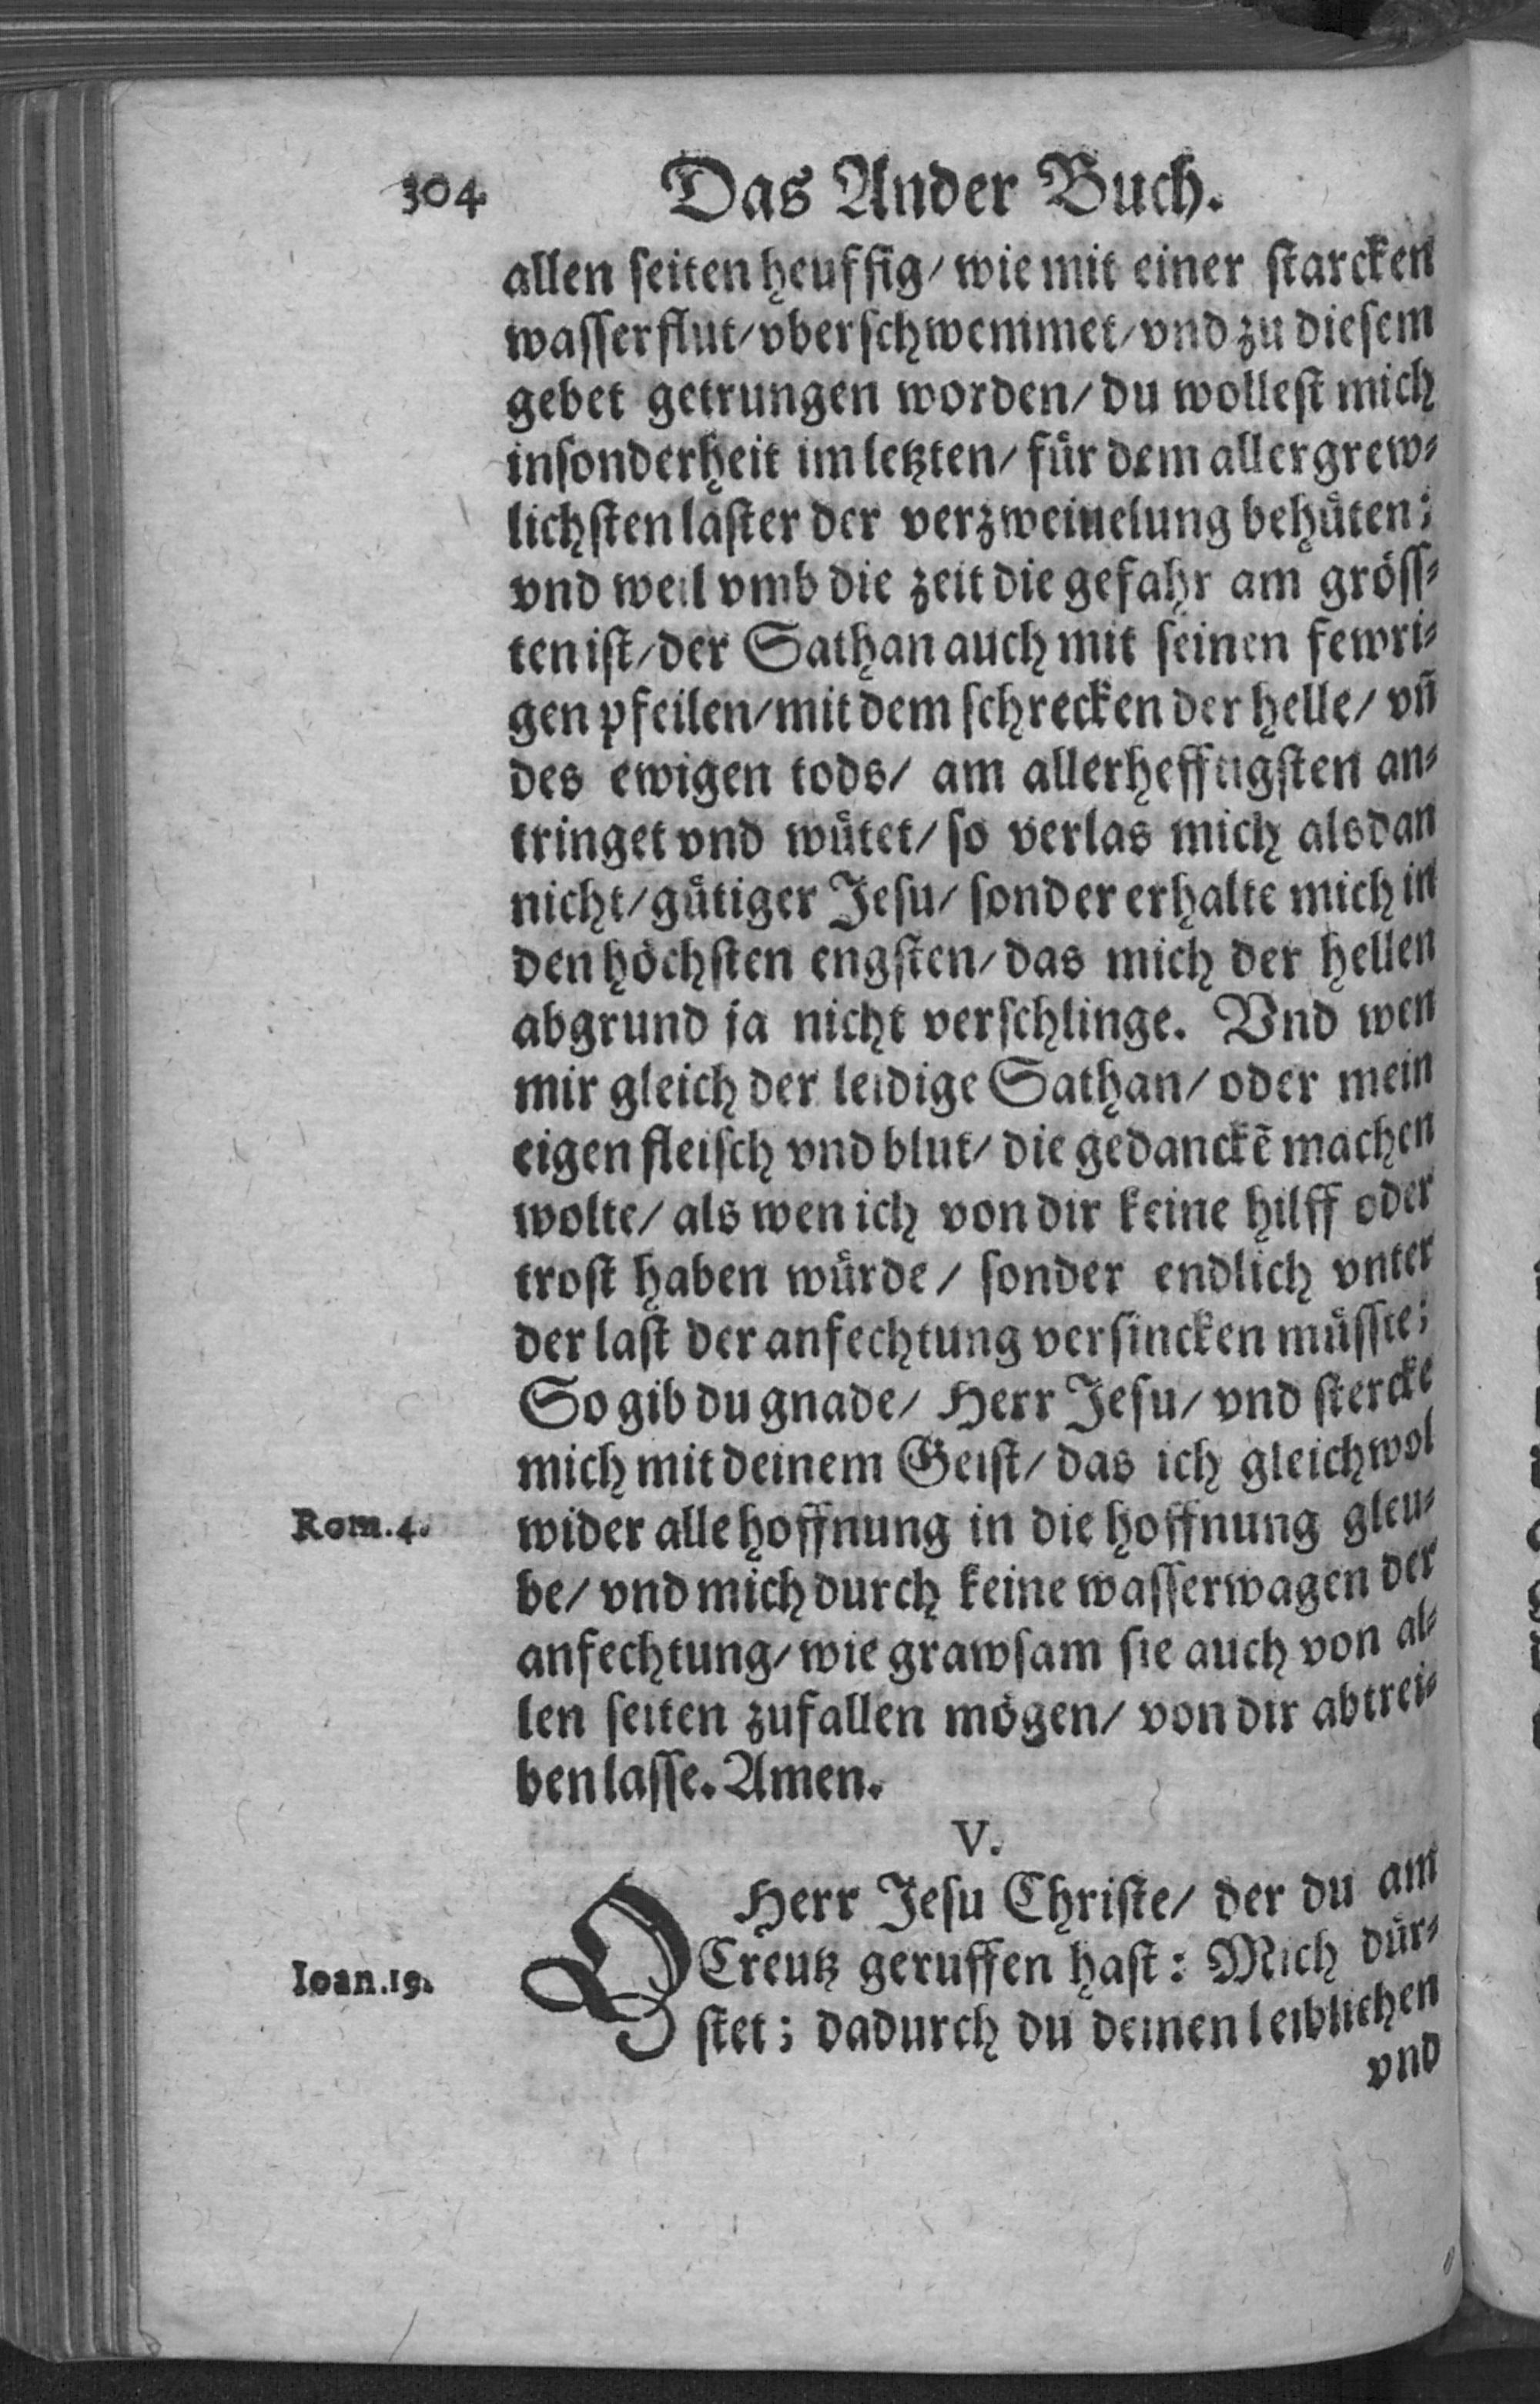 304 Das Ander Buch.
allen seiten heuffig/ wie mit einer starcken
wasserflut/ vberschwemmet/ vnd zu diesem
gebet getrungen worden/ du wollest mich
insonderheit im letzten/ für dem allergrew-
lichsten laster der verzweiuelung behüten;
vnd weil vmb die zeit die gefahr am gröss-
ten ist/ der Sathan auch mit seinen fewri-
gen pfeilen/ mit dem schrecken der helle/ vn̄
des ewigen tods/ am allerhefftigsten an-
tringet vnd wütet/ so verlas mich alsdan
nicht/ gütiger Jesu/ sonder erhalte mich in
den höchsten engsten/ das mich der hellen
abgrund ja nicht verschlinge. Vnd wen
mir gleich der leidige Sathan/ oder mein
eigen fleisch vnd blut/ die gedanckē machen
wolte/ als wen ich von dir keine hilff oder
trost haben würde/ sonder endlich vnter
der last der anfechtung versincken müsste;
So gib du gnade/ Herr Jesu/ vnd stercke
mich mit deinem Geist/ das ich gleichwol
Rom.4. wider alle hoffnung in die hoffnung gleu-
be/ vnd mich durch keine wasserwagen der
anfechtung/ wie grawsam sie auch von al-
len seiten zufallen mögen/ von dir abtrei-
ben lasse. Amen.
V.
O Herr Jesu Christe/ der du am
Ioan.19. Creutz geruffen hast: Mich dür-
stet; dadurch du deinen leiblichen
vnd